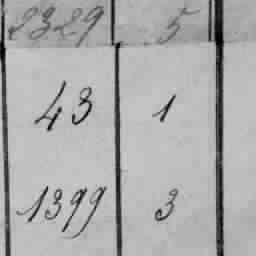 2329 5
43 1
1399 3